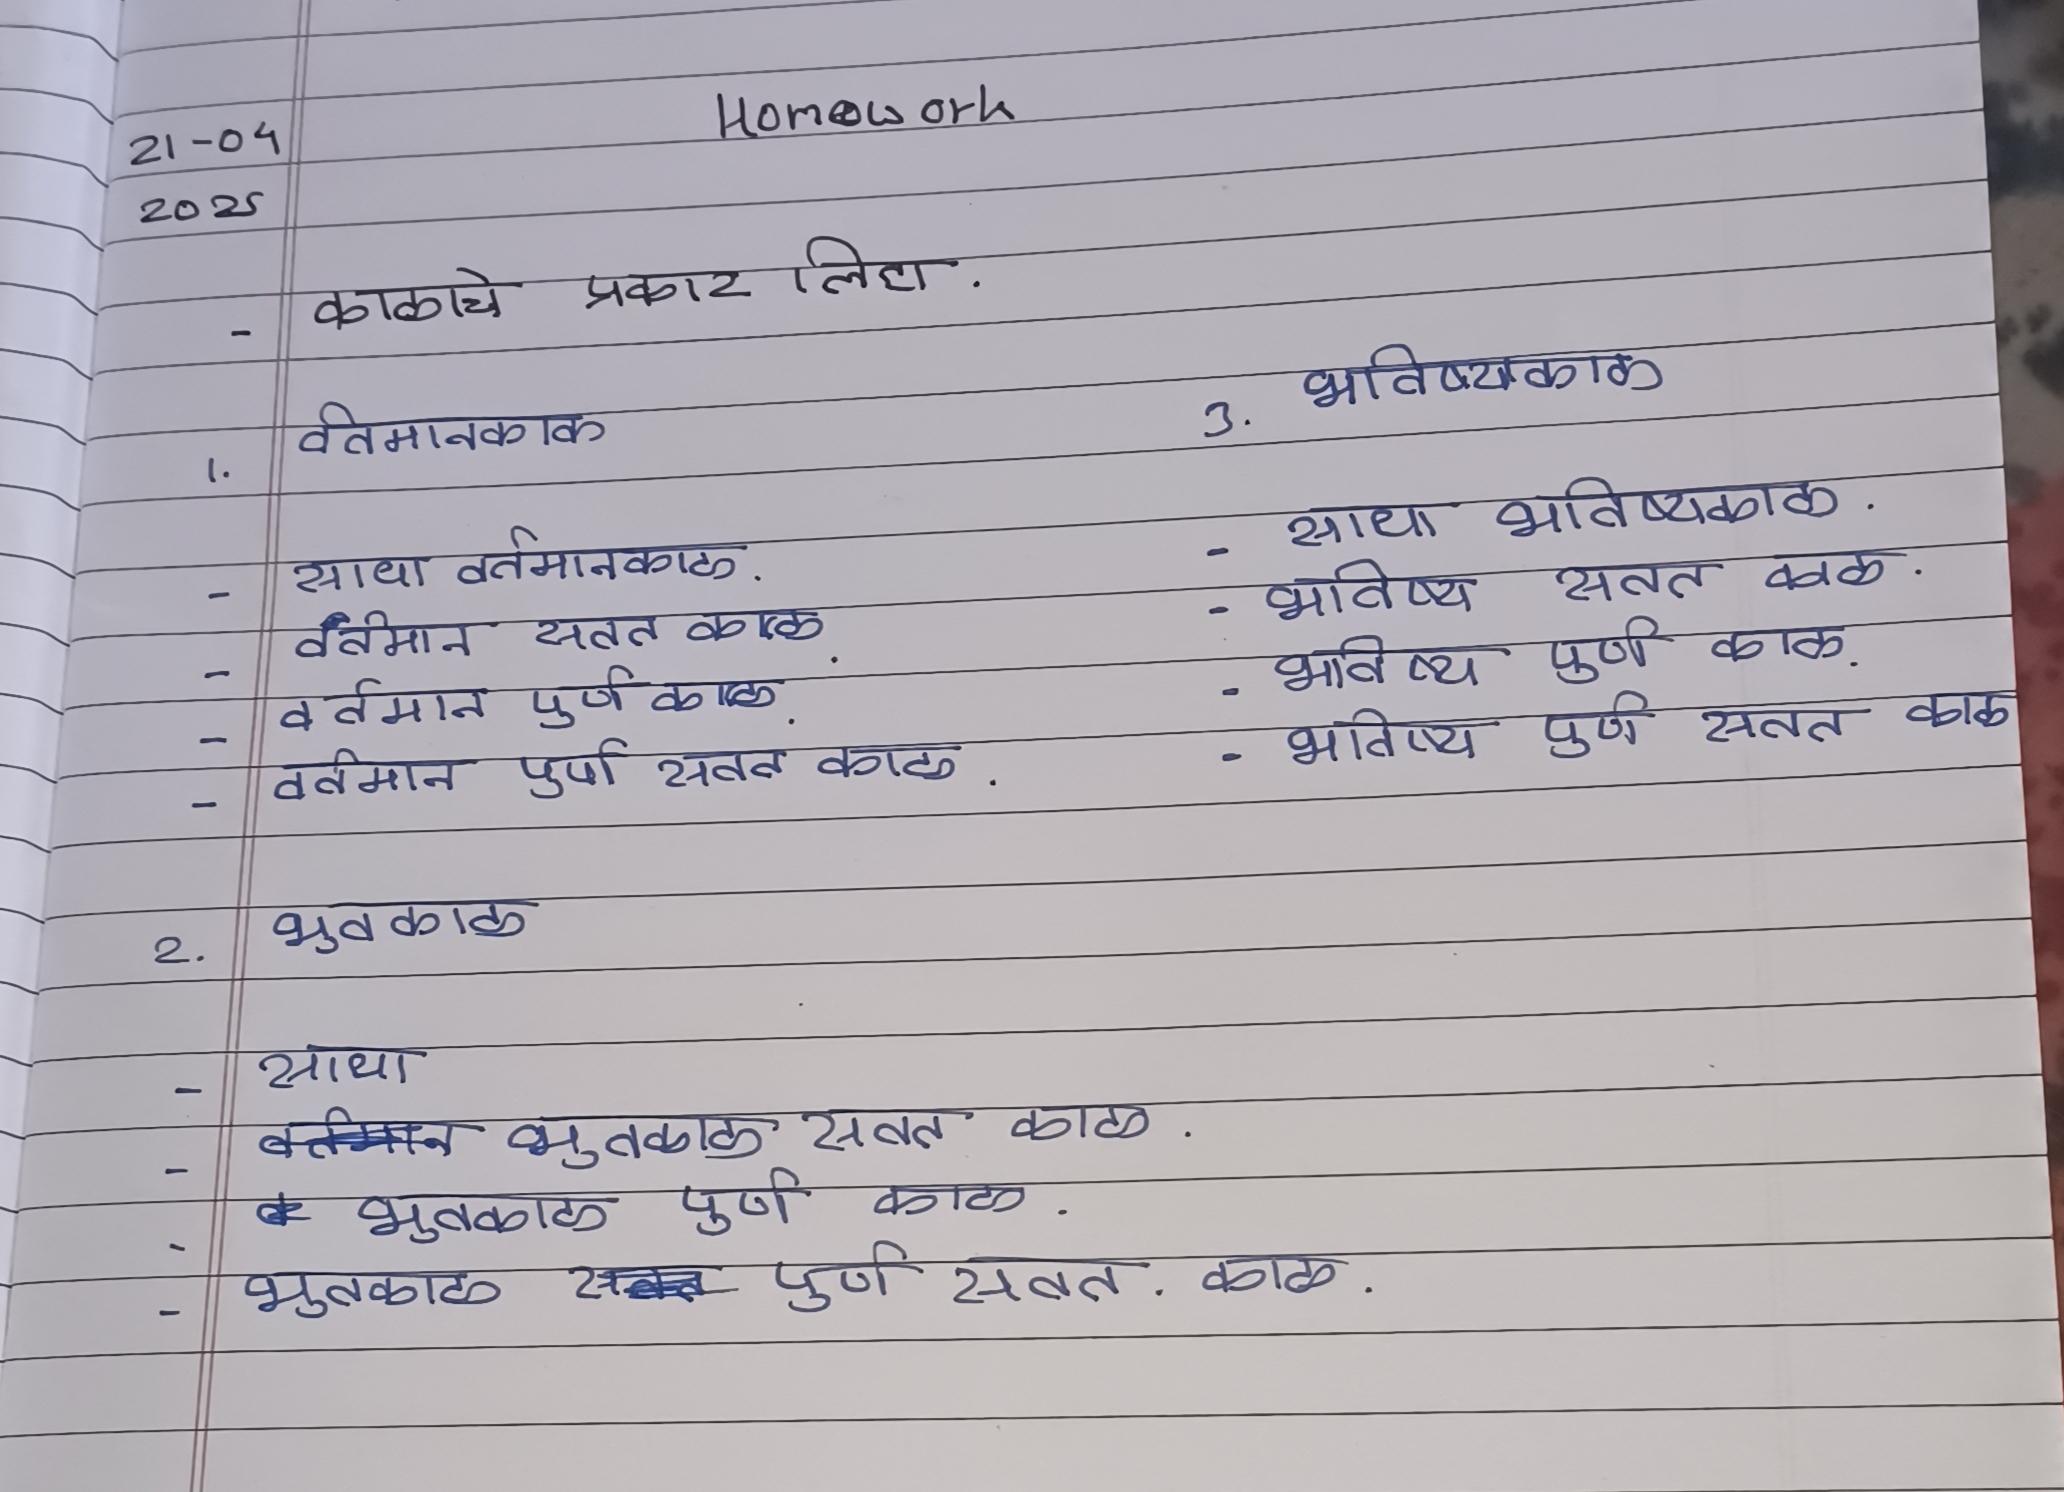 Homework
21-04
2025
- काळाचे प्रकार लिहा.
1. वर्तमानकाळ
- साधा वर्तमानकाळ.
- वर्तमान सतत काळ.
- वर्तमान पुर्ण काळ.
- वर्तमान पुर्ण सतत काळ.
2. भुतकाळ
- साधा
- वर्तमान भुतकाळ सतत काळ.
- भुतकाळ पुर्ण काळ.
- भुतकाळ सतत पुर्ण सतत. काळ.
3. भविष्यकाळ
- साधा भविष्यकाळ.
- भविष्य सतत काळ.
- भविष्य पुर्ण काळ.
- भविष्य पुर्ण सतत काळ